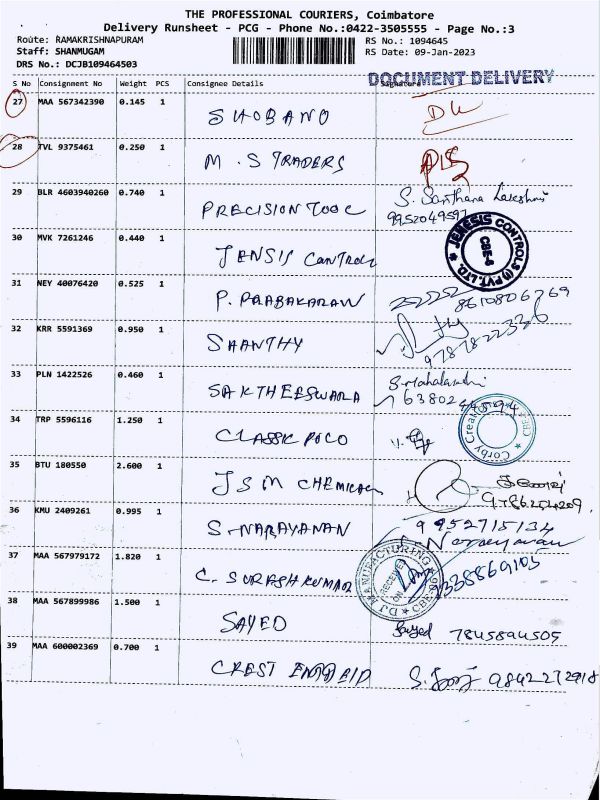 THE PROFESSIONAL COURIERS, Coimbatore
Delivery Runsheet - PCG - Phone No.:0422-3505555 - Page No.:3
Route: RAMAKRISHNAPURAM
RS No.: 1094645
Staff: SHANMUGAM
RS Date: 09-Jan-2023
DRS No.: DCJB109464503
DOCUMENT DELIVERY
S No Consignment No Weight PCS Consignee Details Signature
27 MAA 567342390 0.145 1 SHOBANO
28 TVL 9375461 0.250 1 M.S TRADERS
29 BLR 4603940260 0.740 1 PRECISION TOOL S. Santhana Lakshmi
9952049597
30 MVK 7261246 0.440 1 JENSIS CONTROLS
JENESIS CONTROLS (I) PVT. LTD. CBE-6
31 NEY 40076420 0.525 1 P. PRABAKARAN 8610806769
32 KRR 5591369 0.950 1 SHANTHY
9787822336
33 PLN 1422526 0.460 1 SAKTHEESWARA S. Mahalakshmi
34 TRP 5596116 1.250 1 CLASSIC POLO
35 BTU 180550 2.600 1 JSM CHEMICAL
36 KMU 2409261 0.995 1 S. NARAYANAN 9952715134
Narayanan
37 MAA 567979172 1.820 1 C. SURESH KUMAR
MANUFACTURING
RECEIVED
38 MAA 567899986 1.500 1 SAYED Sayed 7845894505
39 MAA 600002369 0.700 1 CREST 9842272918